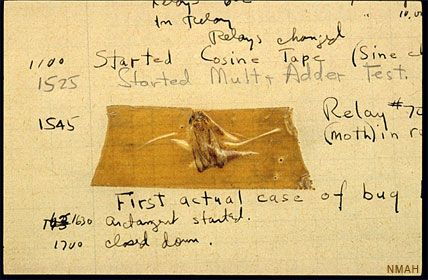 In relay
Relays changed
1100 Started Cosine Tape (Sine
1525 Started Mult + Adder Test.
1545 Relay #70
(moth) in
First actual case of bug
1630 arctangent started.
1700 closed down.
NMAH